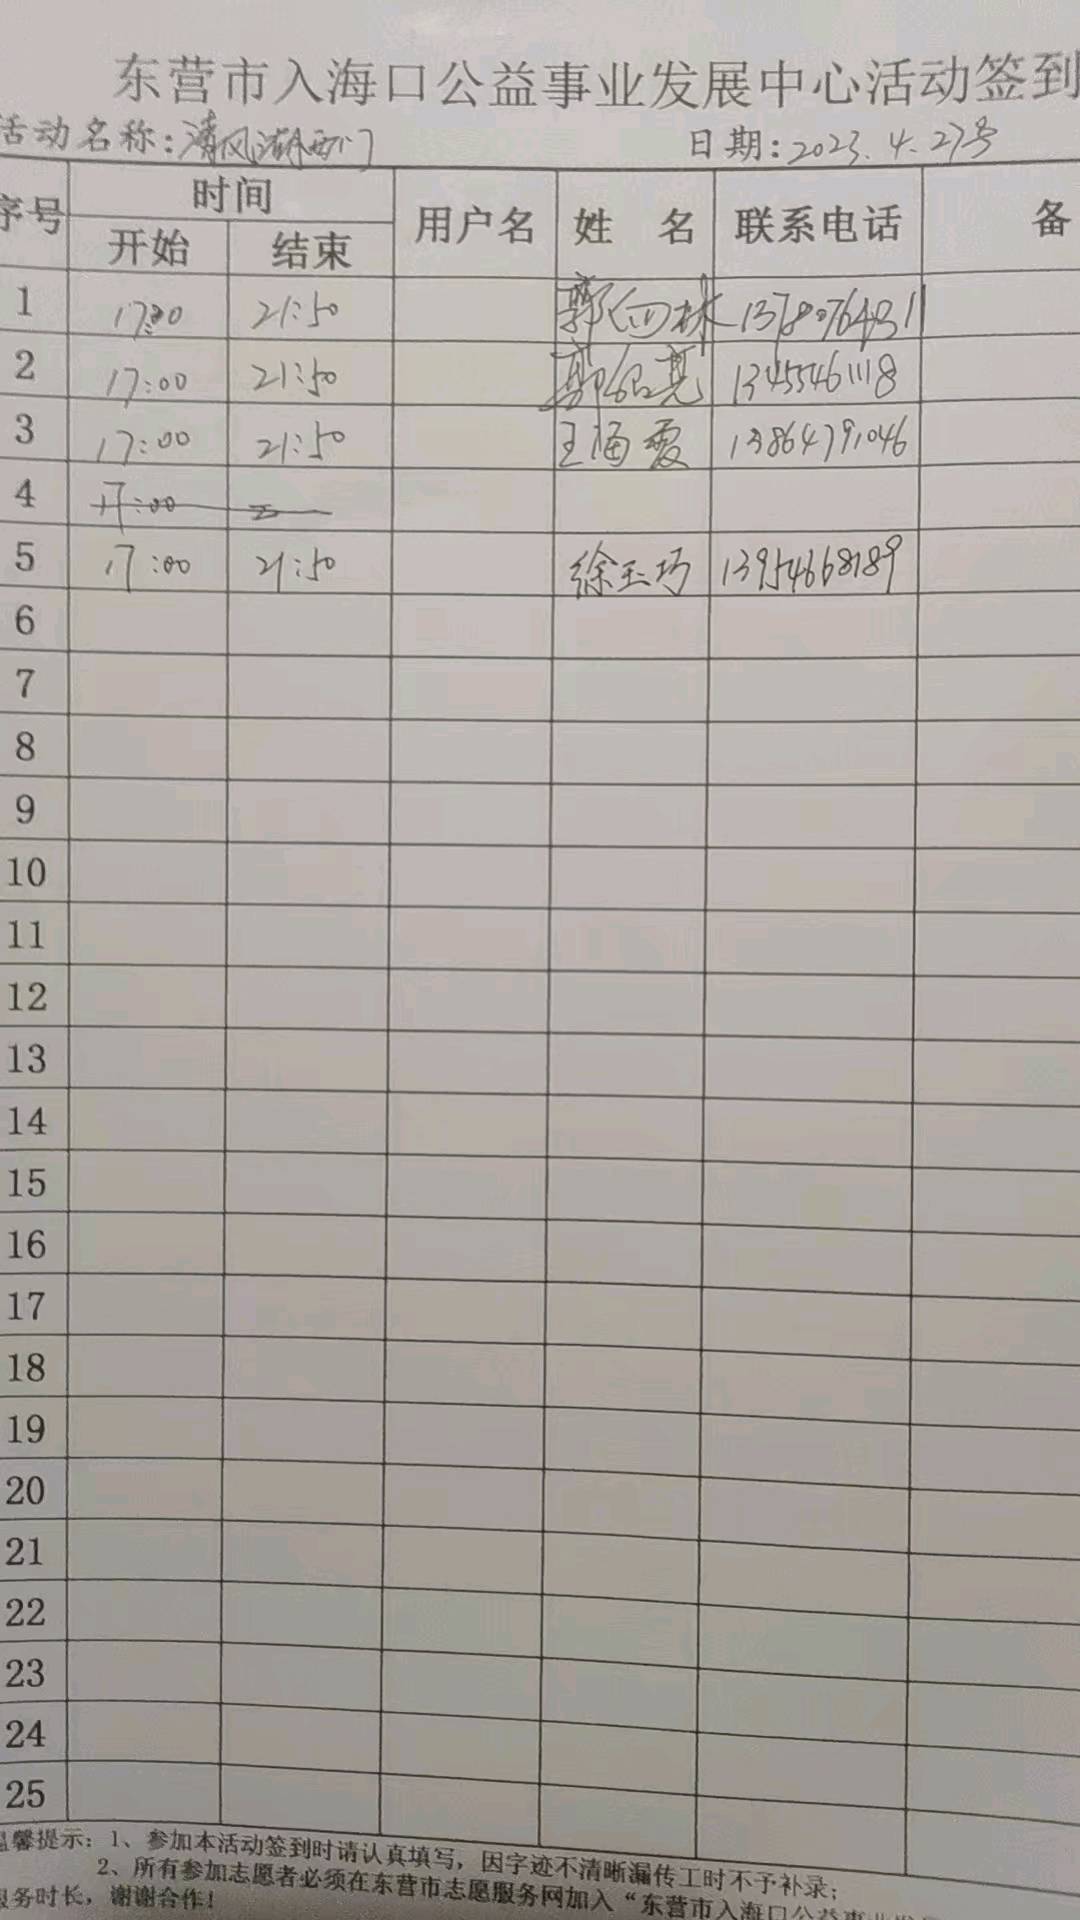 东营市入海口公益事业发展中心活动签到
活动名称：清风湖西门 日期：2023.4.27号
序号 时间 用户名 姓 名 联系电话 备
开始 结束
1 17:00 21:50 郭 林 13780764311
2 17:00 21:50 郭 亮 13455461118
3 17:00 21:50 王海霞 13864791046
4 17:00
5 17:00 21:50 徐玉巧 13954668189
6
7
8
9
10
11
12
13
14
15
16
17
18
19
20
21
22
23
24
25
温馨提示：1、参加本活动签到时请认真填写，因字迹不清晰漏传工时不予补录；
2、所有参加志愿者必须在东营市志愿服务网加入“东营市入海口公益事业发
服务时长，谢谢合作！